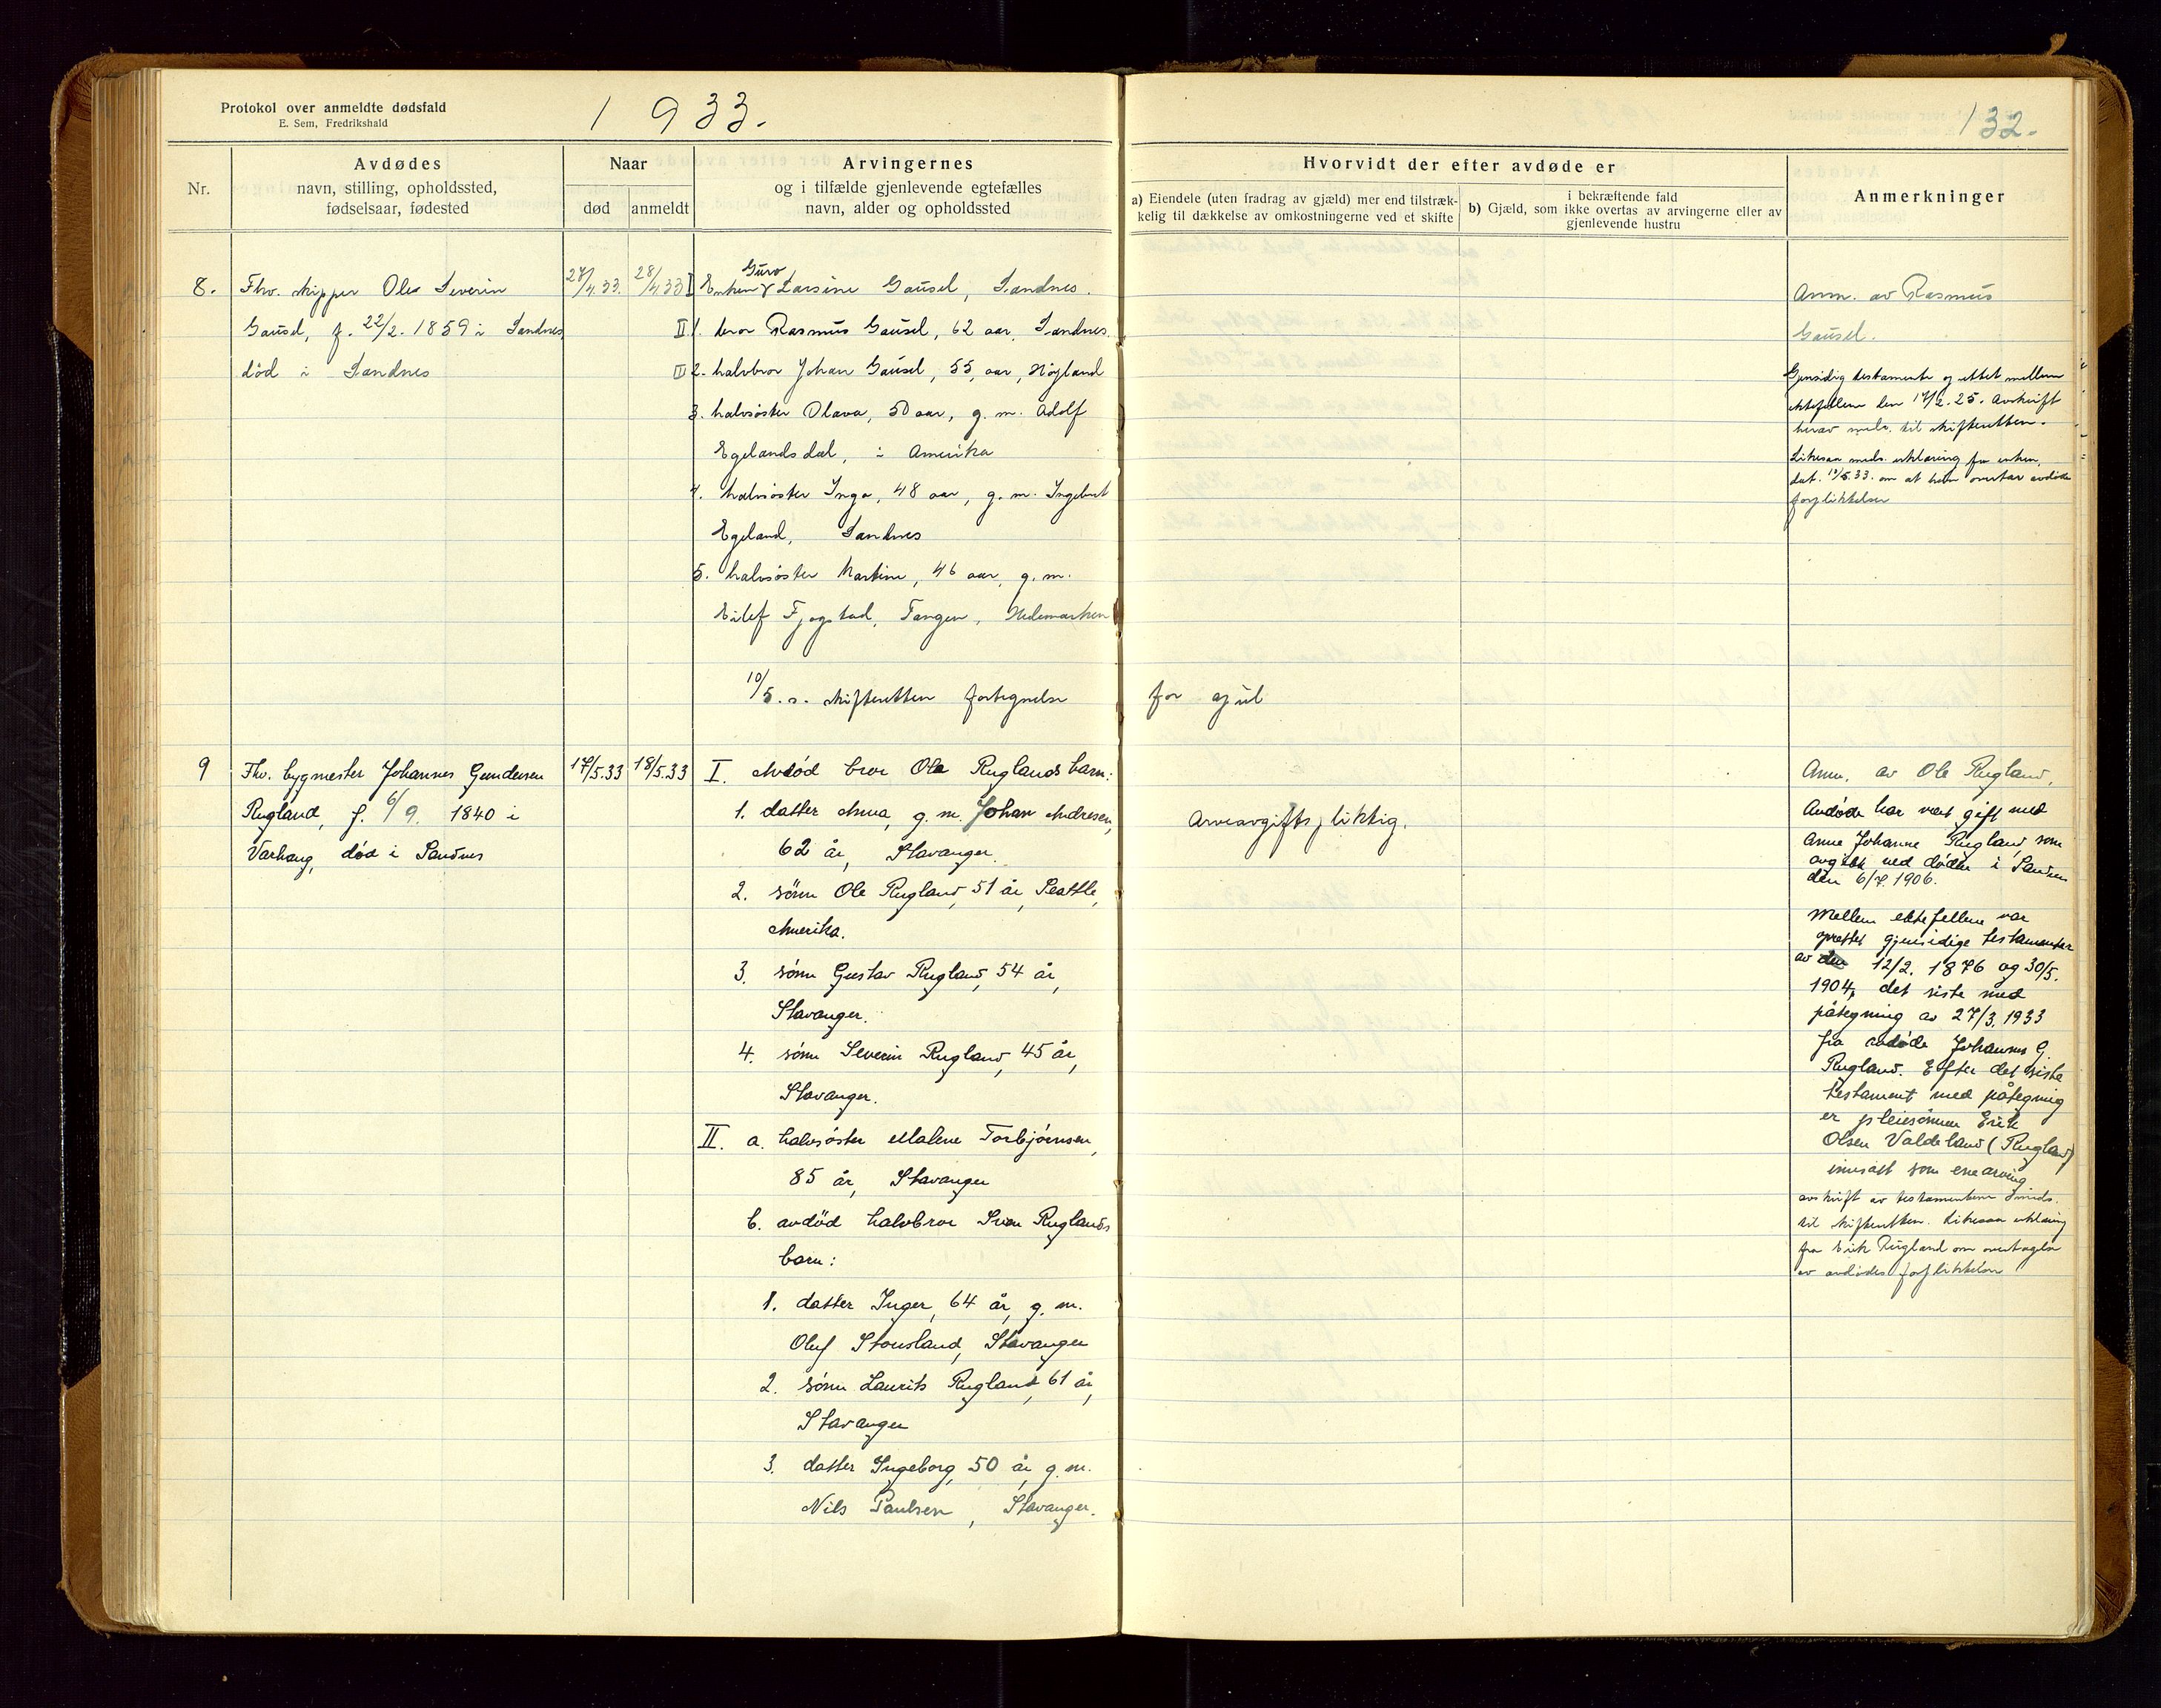 Protokol over anmeldte dødsfald
E. Sem, Fredrikshald
1933.
132.
Nr.
Avdødes
navn, stilling, opholdssted,
fødselsaar, fødested
Naar
død
anmeldt
Arvingernes
og i tilfælde gjenlevende egtefælles
navn, alder og opholdssted
Hvorvidt der efter avdøde er
a) Eiendele (uten fradrag av gjæld) mer end tilstræk-
kelig til dækkelse av omkostningerne ved et skifte
i bekræftende fald
b) Gjæld, som ikke overtas av arvingerne eller av
gjenlevende hustru
Anmerkninger
8.
Fhv. skipper Ole Severin
Gausel, f. 22/2. 1859 i Sandnes
død i Sandnes
27/4.33.
28/4.33
I Enken Guro Larsine Gausel, Sandnes.
II 1. bror Rasmus Gausel, 62 aar, Sandnes.
III 2. halvbror Johan Gausel, 55 aar, Høyland
3. halvsøster Olava, 50 aar, g. m. Adolf
Egelandsdal, i Amerika
4. halvsøster Inga, 48 aar, g. m. Ingebret
Egeland, Sandnes
5. halvsøster Martine, 46 aar, g. m.
Eilef Fjogstad, Tangen, Hedemarken
10/5. s. skifteretten fortegnelse
for gjeld
Anm. av Rasmus
Gausel.
Gjensidig testamente oprettet mellem
ektefellene den 17/2.25. Avskrift
herav meds. til skifteretten.
Likesaa meds. erklæring fra enken,
dat. 10/5.33. om at hun overtar avdødes
forpliktelser
9
Fhv. bygmester Johannes Gundersen
Rugland, f. 6/9. 1840 i
Varhaug, død i Sandnes
17/5.33
18/5.33
I. Avdød bror Ole Ruglands barn:
1. datter Anna, g. m. Johan Andresen,
62 år, Stavanger.
2. sønn Ole Rugland, 51 år, Seattle,
Amerika.
3. sønn Gustav Rugland, 54 år,
Stavanger.
4. sønn Severin Rugland, 45 år,
Stavanger.
II. a. halvsøster Malene Torbjørnsen,
85 år, Stavanger
b. avdød halvbror Sven Ruglands
barn:
1. datter Inger, 64 år, g. m.
Oluf Stousland, Stavanger
2. sønn Laurits Rugland, 61 år,
Stavanger
3. datter Ingeborg, 50 år, g. m.
Nils Paulsen, Stavanger.
Arveavgiftspliktig.
Anm. av Ole Rugland.
Avdøde har vært gift med
Anne Johanne Rugland som
avgikk ved døden i Sandnes
den 6/7. 1906.
Mellem ektefellene var
oprettet gjensidige testamenter
av den 12/2. 1876 og 30/5.
1904, det siste med
påtegning av 27/3. 1933
fra avdøde Johannes G.
Rugland. Efter det siste
testament med påtegning
er pleiesønnen Erik
Olsen Valdeland (Rugland)
innsatt som enearving
avskrift av testamentene meds.
til skifteretten. Likesaa erklæring
fra Erik Rugland om overtagelse
av avdødes forpliktelser